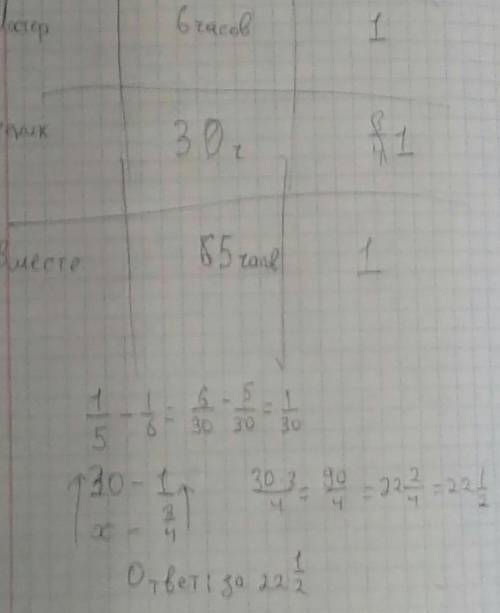 6 часов 1
30 ч 1
Вместе 5 часов 1
1/5 - 1/6 = 6/30 - 5/30 = 1/30
30 - 1 30·3/4 = 90/4 = 22 2/4 = 22 1/2
x - 3/4
Ответ: за 22 1/2